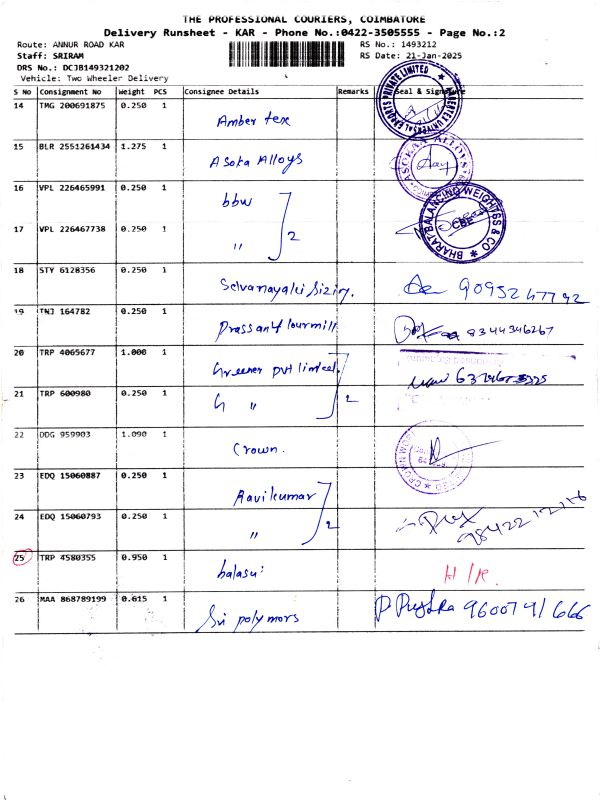 THE PROFESSIONAL COURIERS, COIMBATORE
Delivery Runsheet - KAR - Phone No.:0422-3505555 - Page No.:2
Route: ANNUR ROAD KAR RS No.: 1493212
Staff: SRIRAM RS Date: 21-Jan-2025
DRS No.: DCJB149321202
Vehicle: Two Wheeler Delivery
S No Consignment No Weight PCS Consignee Details Remarks Seal & Signature
14 TMG 200691875 0.250 1 Amber tex
15 BLR 2551261434 1.275 1 Asoka Alloys ASOKAN ALLOYS
16 VPL 226465991 0.250 1 bbw
BHARAT BALANCING WEIGHTSS & CO CBE
17 VPL 226467738 0.250 1 " 2
18 STY 6128356 0.250 1 Selvanayaki Sizing.
19 TNJ 164782 0.250 1 Prassant flourmill 8344346267
20 TRP 4065677 1.000 1 Greener pvt limited
21 TRP 600980 0.250 1 G " 2
22 DDG 959903 1.090 1 Crown.
23 EDQ 15060887 0.250 1 Ravikumar
24 EDQ 15060793 0.250 1 " 2
25 TRP 4580355 0.950 1 balasu H/R.
26 MAA 868789199 0.615 1 Sri polymors 9600791666